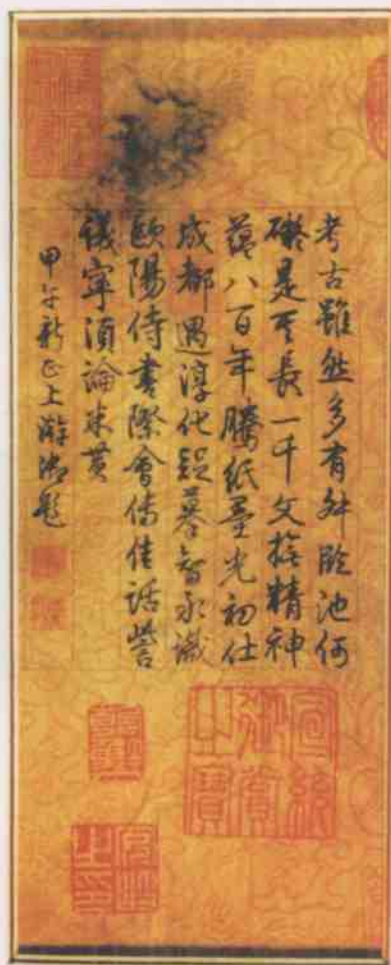 考古雖然多有舛臨池何
礙是其長一千文精神
蘊八百年騰紙墨光初仕
成都遇淳化疑摹智永識
歐陽侍書際會傳佳話訾
議寧須論米黃
甲午新正上澣御題